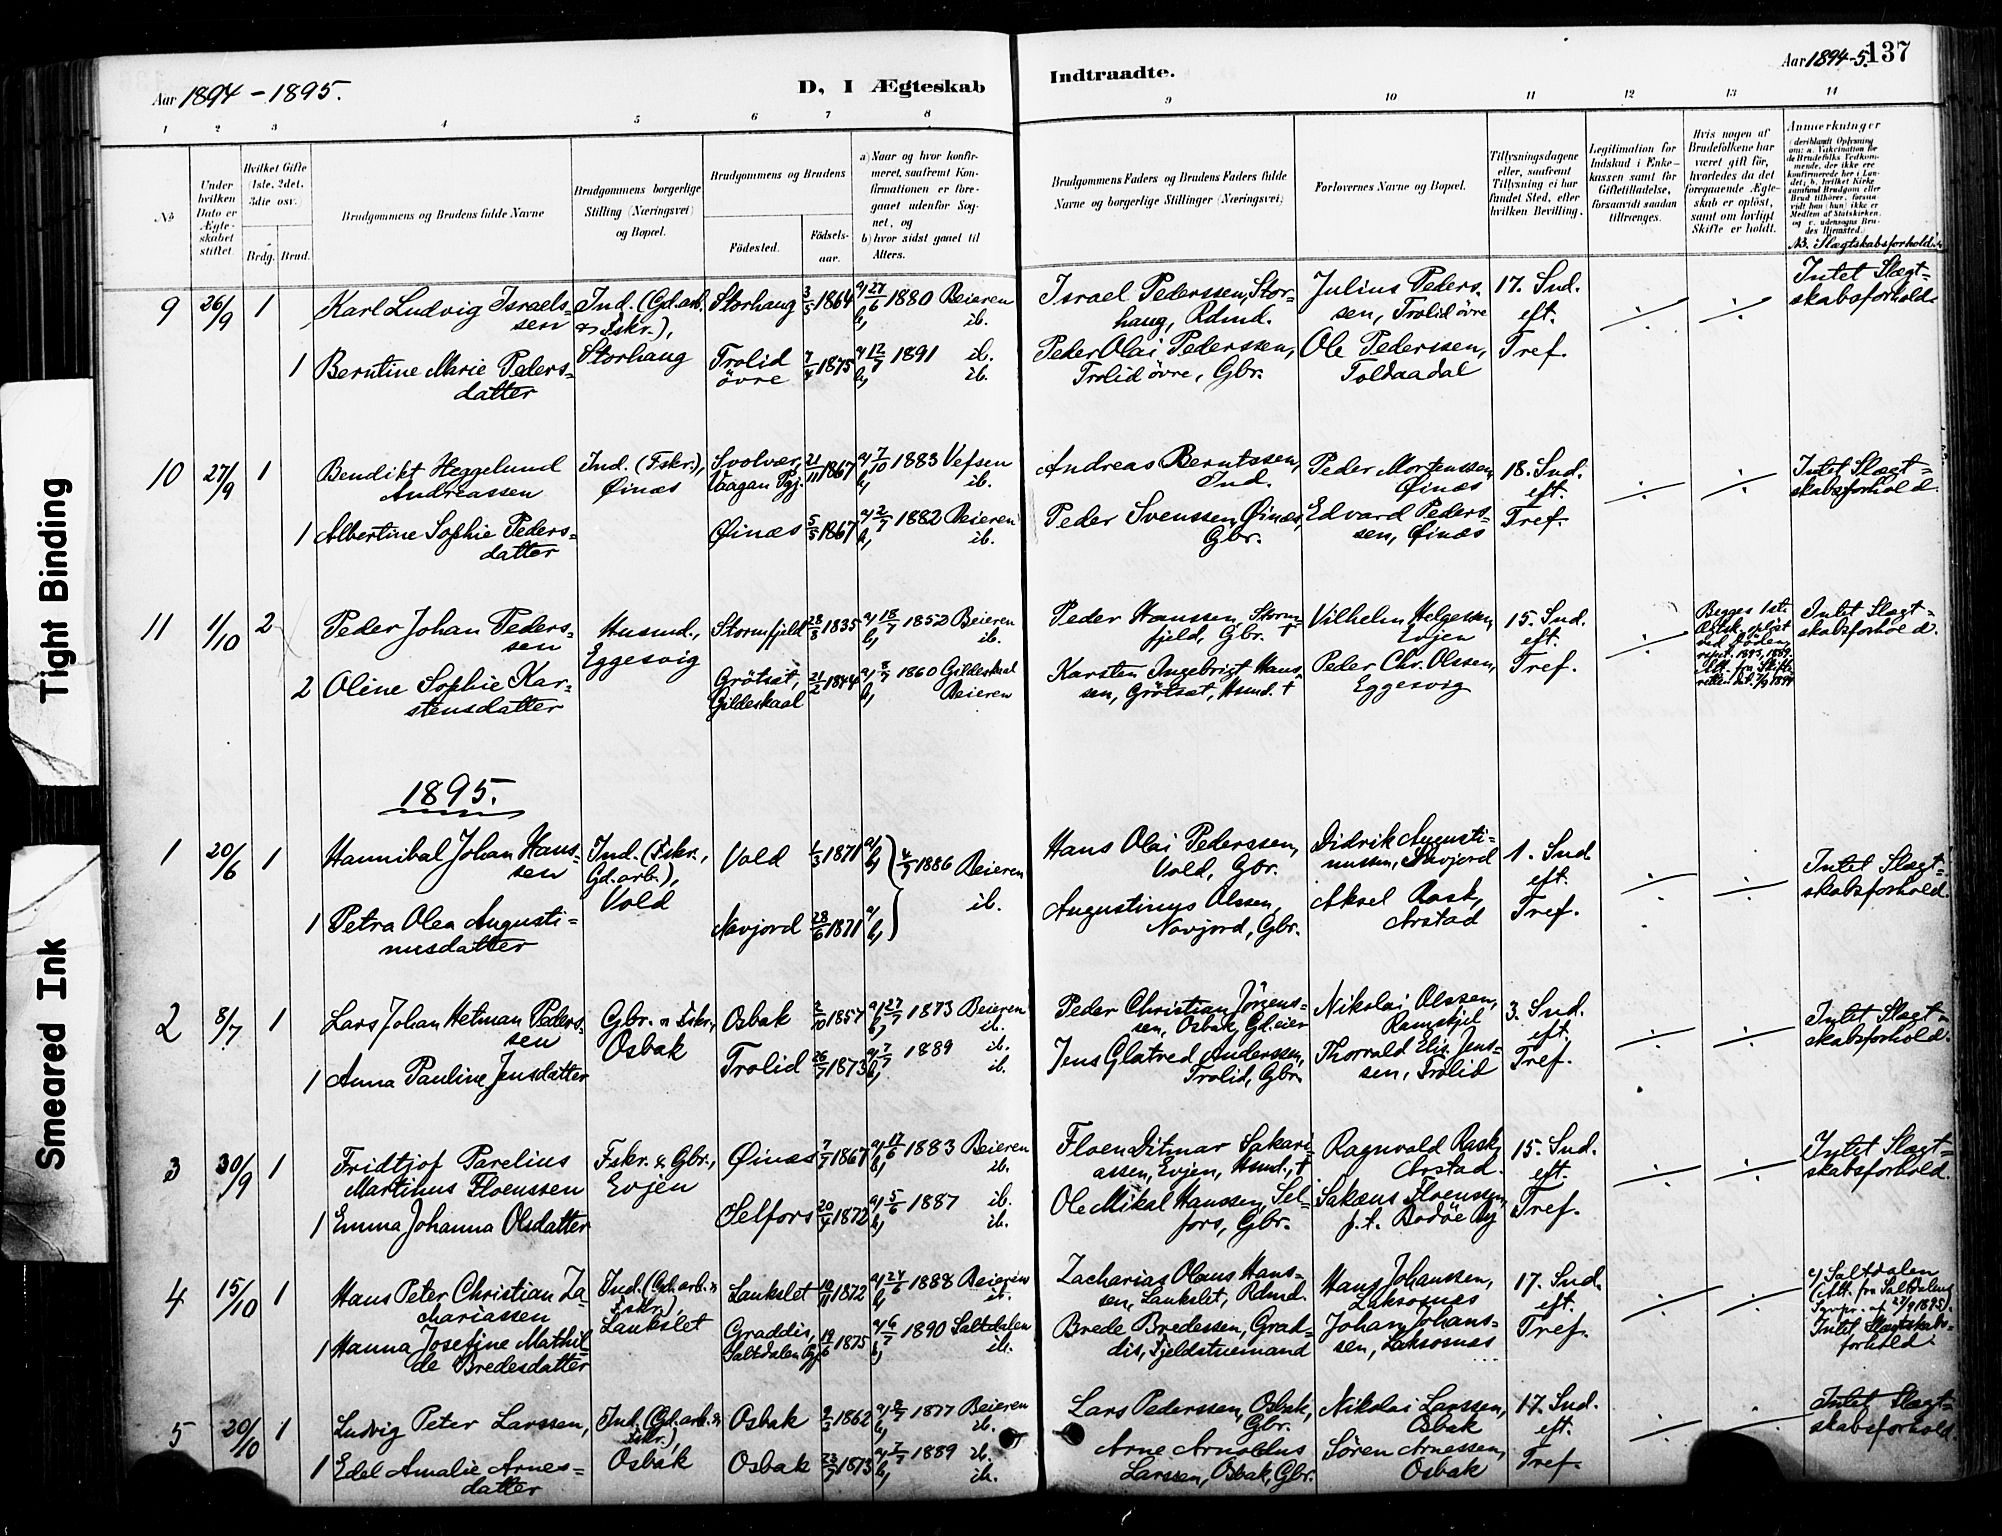 Aar 1894-1895.
D, I Ægteskab
Indtraadte.
Aar 1894-5. 137
1 2 3 4 5 6 7 8 9 10 11 12 13 14
No
Under hvilken Dato er Ægteskabet stiftet.
Hvilket Gifte (1ste, 2det, 3die osv.)
Brdg. Brud.
Brudgommens og Brudens fulde Navne
Brudgommens borgerlige Stilling (Næringsvei) og Bopæl.
Brudgommens og Brudens
Födested.
Födsels-aar.
a) Naar og hvor konfirmeret, saafremt Konfirmationen er foregaaet udenfor Sognet, og
b) hvor sidst gaaet til Alters.
Brudgommens Faders og Brudens Faders fulde Navne og borgerlige Stillinger (Næringsvei)
Forlovernes Navne og Bopæl.
Tillysningsdagene eller, saafremt Tillysning ei har fundet Sted, efter hvilken Bevilling.
Legitimation for Indskud i Enkekassen samt for Giftetilladelse, forsaavidt saadan tiltrænges.
Hvis nogen af Brudefolkene har været gift för, hvorledes da det foregaaende Ægteskab er oplöst, samt om lovligt Skifte er holdt.
Anmærkninger
NB. Slægtskabsforhold
9 26/9 1 Karl Ludvig Israels-
sen
Ind. (Gd.arb.
& Fskr.),
Storhaug
Storhaug 3/5 1864 a) 27/6 1880 Beieren
b) ib.
Israel Pederssen, Stor-
haug, Rdmd.
Julius Peders-
sen, Trolid øvre
17. Snd.
eft.
Tref.
Intet Slægt-
skabsforhold.
1 Berntine Marie Peders-
datter
Trolid
øvre
7/4 1875 a) 12/7 1891 ib.
b) ib.
Peder Olai Pederssen,
Trolid øvre, Gbr.
Ole Pederssen,
Toldaadal
10 27/9 1 Bendikt Heggelund
Andreassen
Ind. (Fskr.),
Øinæs
Svolvær,
Vaagan Pgj.
21/11 1867 a) 7/10 1883 Vefsen
b) ib.
Andreas Berntssen,
Ind.
Peder Mortenssen,
Øinæs
18. Snd.
eft.
Tref.
Intet Slægt-
skabsforhold.
1 Albertine Sophie Peders-
datter
Øinæs 5/5 1867 a) 2/7 1882 Beieren
b) ib.
Peder Svenssen Øinæs,
Gbr.
Edvard Peders-
sen, Øinæs
11 1/10 2 Peder Johan Peders-
sen
Husmd.,
Eggesvig
Stormfjeld 28/8 1835 a) 18/7 1852 Beieren
b) ib.
Peder Hanssen, Storm-
fjeld, Gbr. +
Vilhelm Helgessen,
Evjen
15. Snd.
eft.
Tref.
Begges 1ste
Ægtsk. opløst
ved Døden,
resp. 1893, 1889.
Att. fra Skifte-
retten
Intet Slægt-
skabsforhold.
2 Oline Sophie Kar-
stensdatter
Grötset,
Gildeskaal
21/2 1844 a) 8/7 1860 Gildeskaal
b) Beieren
Karsten Ingebrigt Hans-
sen, Grötset, Hsmd. +
Peder Chr. Olssen,
Eggesvig
1895.
1 20/6 1 Hannibal Johan Hans-
sen
Ind. (Fskr.,
Gd.arb.),
Vold
Vold 1/3 1871 a)
b)
4/7 1886 Beieren
ib.
Hans Olai Pederssen,
Vold, Gbr.
Didrik Augusti-
nussen, Navjord
1. Snd
eft.
Tref.
Intet Slægt-
skabsforhold.
1 Petra Olea Augusti-
nusdatter
Navjord 28/6 1871 a)
b)
Augustinus Olssen,
Navjord, Gbr.
Aksel Rask,
Arstad
2 8/7 1 Lars Johan Hetman Peders-
sen
Gbr. & Fskr.,
Osbak
Osbak 2/10 1857 a) 27/7 1873 Beieren
b) ib.
Peder Christian Jörgens-
sen, Osbak, Gd.eier
Nikolai Olssen,
Ramskjel
3. Snd.
eft.
Tref.
Intet Slægt-
skabsforhold.
1 Anna Pauline Jensdatter
Trolid 26/7 1873 a) 7/7 1889 ib.
b) ib.
Jens Glatved Anderssen,
Trolid, Gbr.
Thorvald Elis. Jens-
sen, Trolid
3 30/9 1 Fridtjof Parelius
Martinus Floenssen
Fskr. & Gbr.,
Evjen
Øinæs 7/7 1867 a) 17/6 1883 Beieren
b) ib.
Floen Ditmar Sakari-
assen, Evjen, Hsmd., +
Ragnvald Rask,
Arstad.
15. Snd.
eft.
Tref.
Intet Slægt-
skabsforhold.
1 Emma Johanna Olsdatter
Selfors 20/4 1872 a) 5/6 1887 ib.
b) ib.
Ole Mikal Hanssen, Sel-
fors, Gbr.
Sakæus Floenssen,
p.t. Bodøe By
4 15/10 1 Hans Peter Christian Za-
chariassen
Ind. (Gd.arb. &
Fskr.),
Lankslet
Lankslet 10/11 1872 a) 24/6 1888 Beieren
b) ib.
Zacharias Olaus Hans-
sen, Lankslet, Rdmd.
Hans Johanssen,
Laksosnes
17. Snd.
eft.
Tref.
c) Saltdalen
(Att. fra Saltdalens
Sgnpr. af 27/9 1895).
Intet Slægtskabs-
forhold.
1 Hanna Josefine Mathil-
de Bredesdatter
Graddis,
Saltdalen Pgj.
19/6 1875 a) 6/7 1890 Saltdalen
b) ib.
Brede Bredessen, Grad-
dis, Fjeldstuemand
Johan Johans-
sen, Laksosnes
5 20/10 1 Ludvig Peter Larssen,
Ind. (Gd.arb. &
Fskr.),
Osbak
Osbak 9/3 1862 a) 8/7 1877 Beieren
b) ib.
Lars Pederssen, Osbak,
Gbr.
Nikolai Larssen,
Osbak
17. Snd.
eft.
Tref.
Intet Slægt-
skabsforhold.
1 Edel Amalie Arnes-
datter
Osbak 23/7 1873 a) 7/7 1889 ib.
b) ib.
Arne Arnoldus
Larssen, Osbak, Gbr.
Søren Arnessen,
Osbak
Tight Binding
Smeared Ink